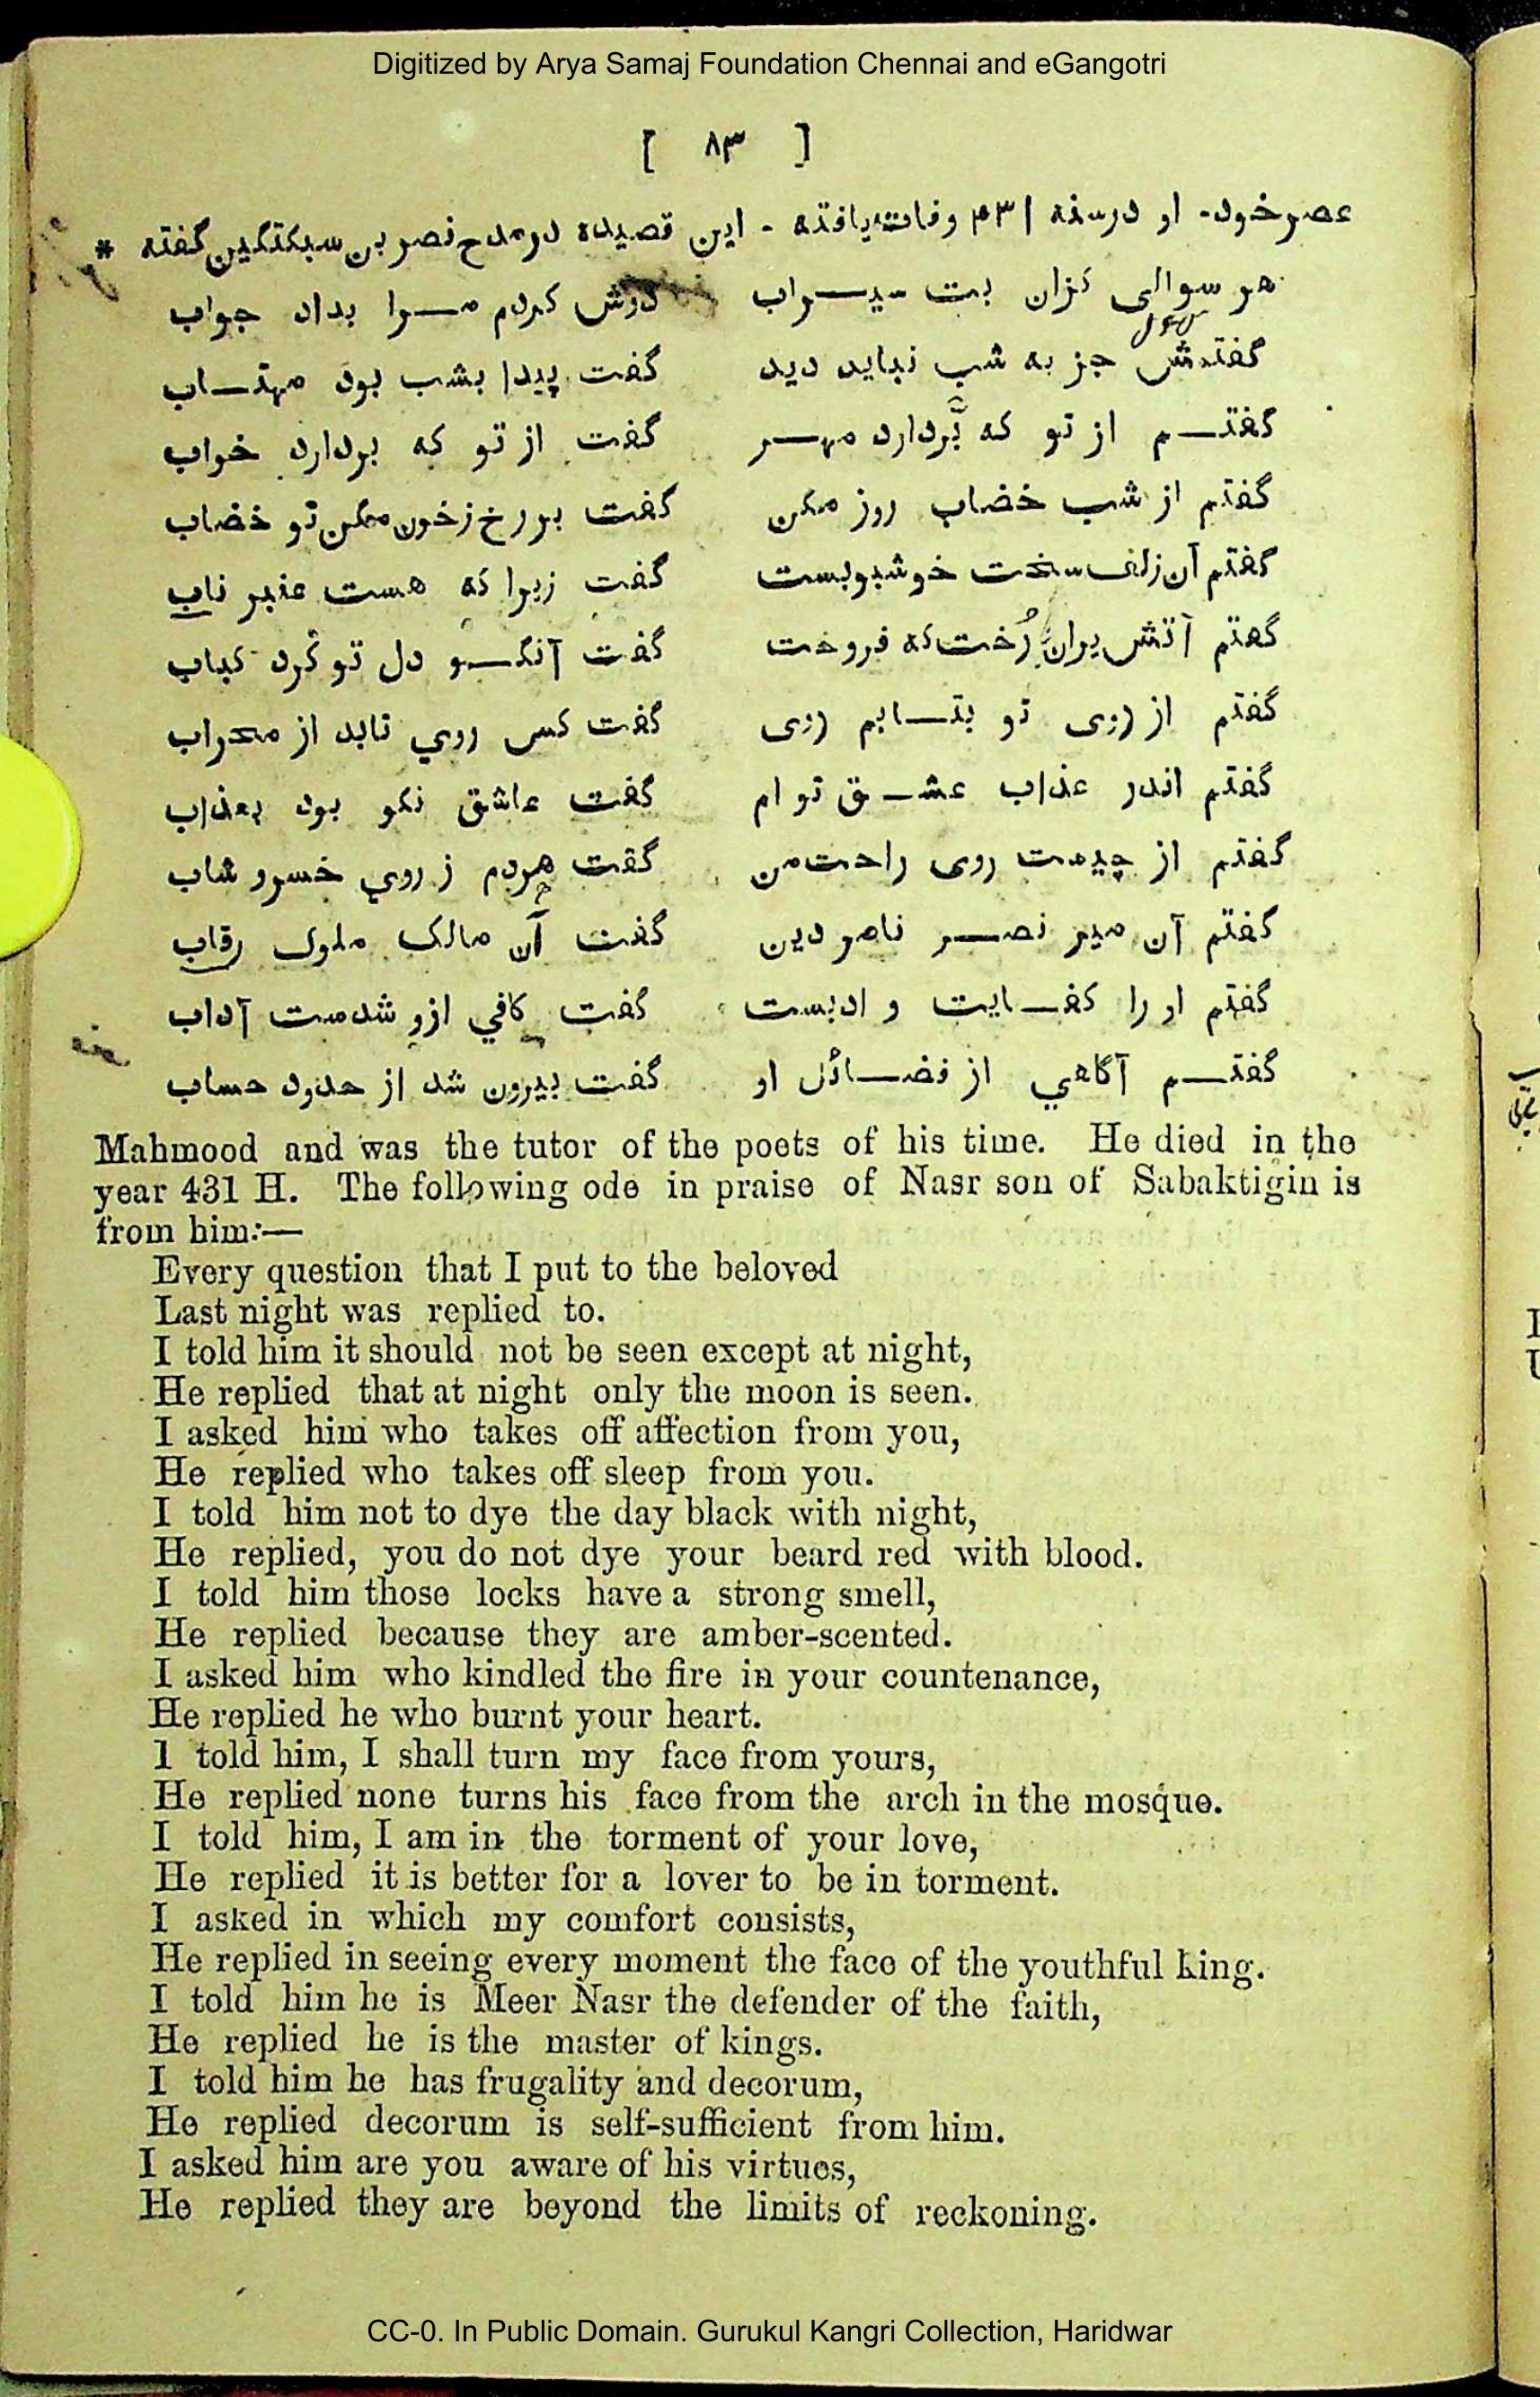 Digitized by Arya Samaj Foundation Chennai and eGangotri
[ ۸۳ ]
عصرخود- او درسنه ۴۳۱ وفات یافته - این قصیده درمدح نصر بن سبکتگین گفته *
هر سوالی کزان بت سیــراب دوش کردم مــرا بداد جواب
گفتمش جز به شب نباید دید گفت پیدا بشب بود مهتــاب
گفتــم از تو که بردارد مهــر گفت از تو که بردارد خواب
گفتم از شب خضاب روز مکن گفت بر رخ زخون مکن تو خضاب
گفتم آن زلف سخت خوشبوبست گفت زیرا که هست عنبر ناب
گفتم آتش بران رُخت که فروخت گفت آنکــو دل تو کرد کباب
گفتم از روی تو بتــابم روی گفت کس روي تابد از محراب
گفتم اندر عذاب عشــق تو ام گفت عاشق نکو بود بعذاب
گفتم از چیست روی راحت من گفت هردم ز روي خسرو شاب
گفتم آن میر نصــر ناصر دین گفت آن مالک ملوک رقاب
گفتم او را کفــایت و ادبست گفت کافي ازو شدست آداب
گفتــم آگاهي از فضــائل او گفت بیرون شد از حدود حساب
Mahmood and was the tutor of the poets of his time. He died in the
year 431 H. The following ode in praise of Nasr son of Sabaktigin is
from him:—
Every question that I put to the beloved
Last night was replied to.
I told him it should not be seen except at night,
He replied that at night only the moon is seen.
I asked him who takes off affection from you,
He replied who takes off sleep from you.
I told him not to dye the day black with night,
He replied, you do not dye your beard red with blood.
I told him those locks have a strong smell,
He replied because they are amber-scented.
I asked him who kindled the fire in your countenance,
He replied he who burnt your heart.
1 told him, I shall turn my face from yours,
He replied none turns his face from the arch in the mosque.
I told him, I am in the torment of your love,
He replied it is better for a lover to be in torment.
I asked in which my comfort consists,
He replied in seeing every moment the face of the youthful king.
I told him he is Meer Nasr the defender of the faith,
He replied he is the master of kings.
I told him he has frugality and decorum,
He replied decorum is self-sufficient from him.
I asked him are you aware of his virtues,
He replied they are beyond the limits of reckoning.
CC-0. In Public Domain. Gurukul Kangri Collection, Haridwar